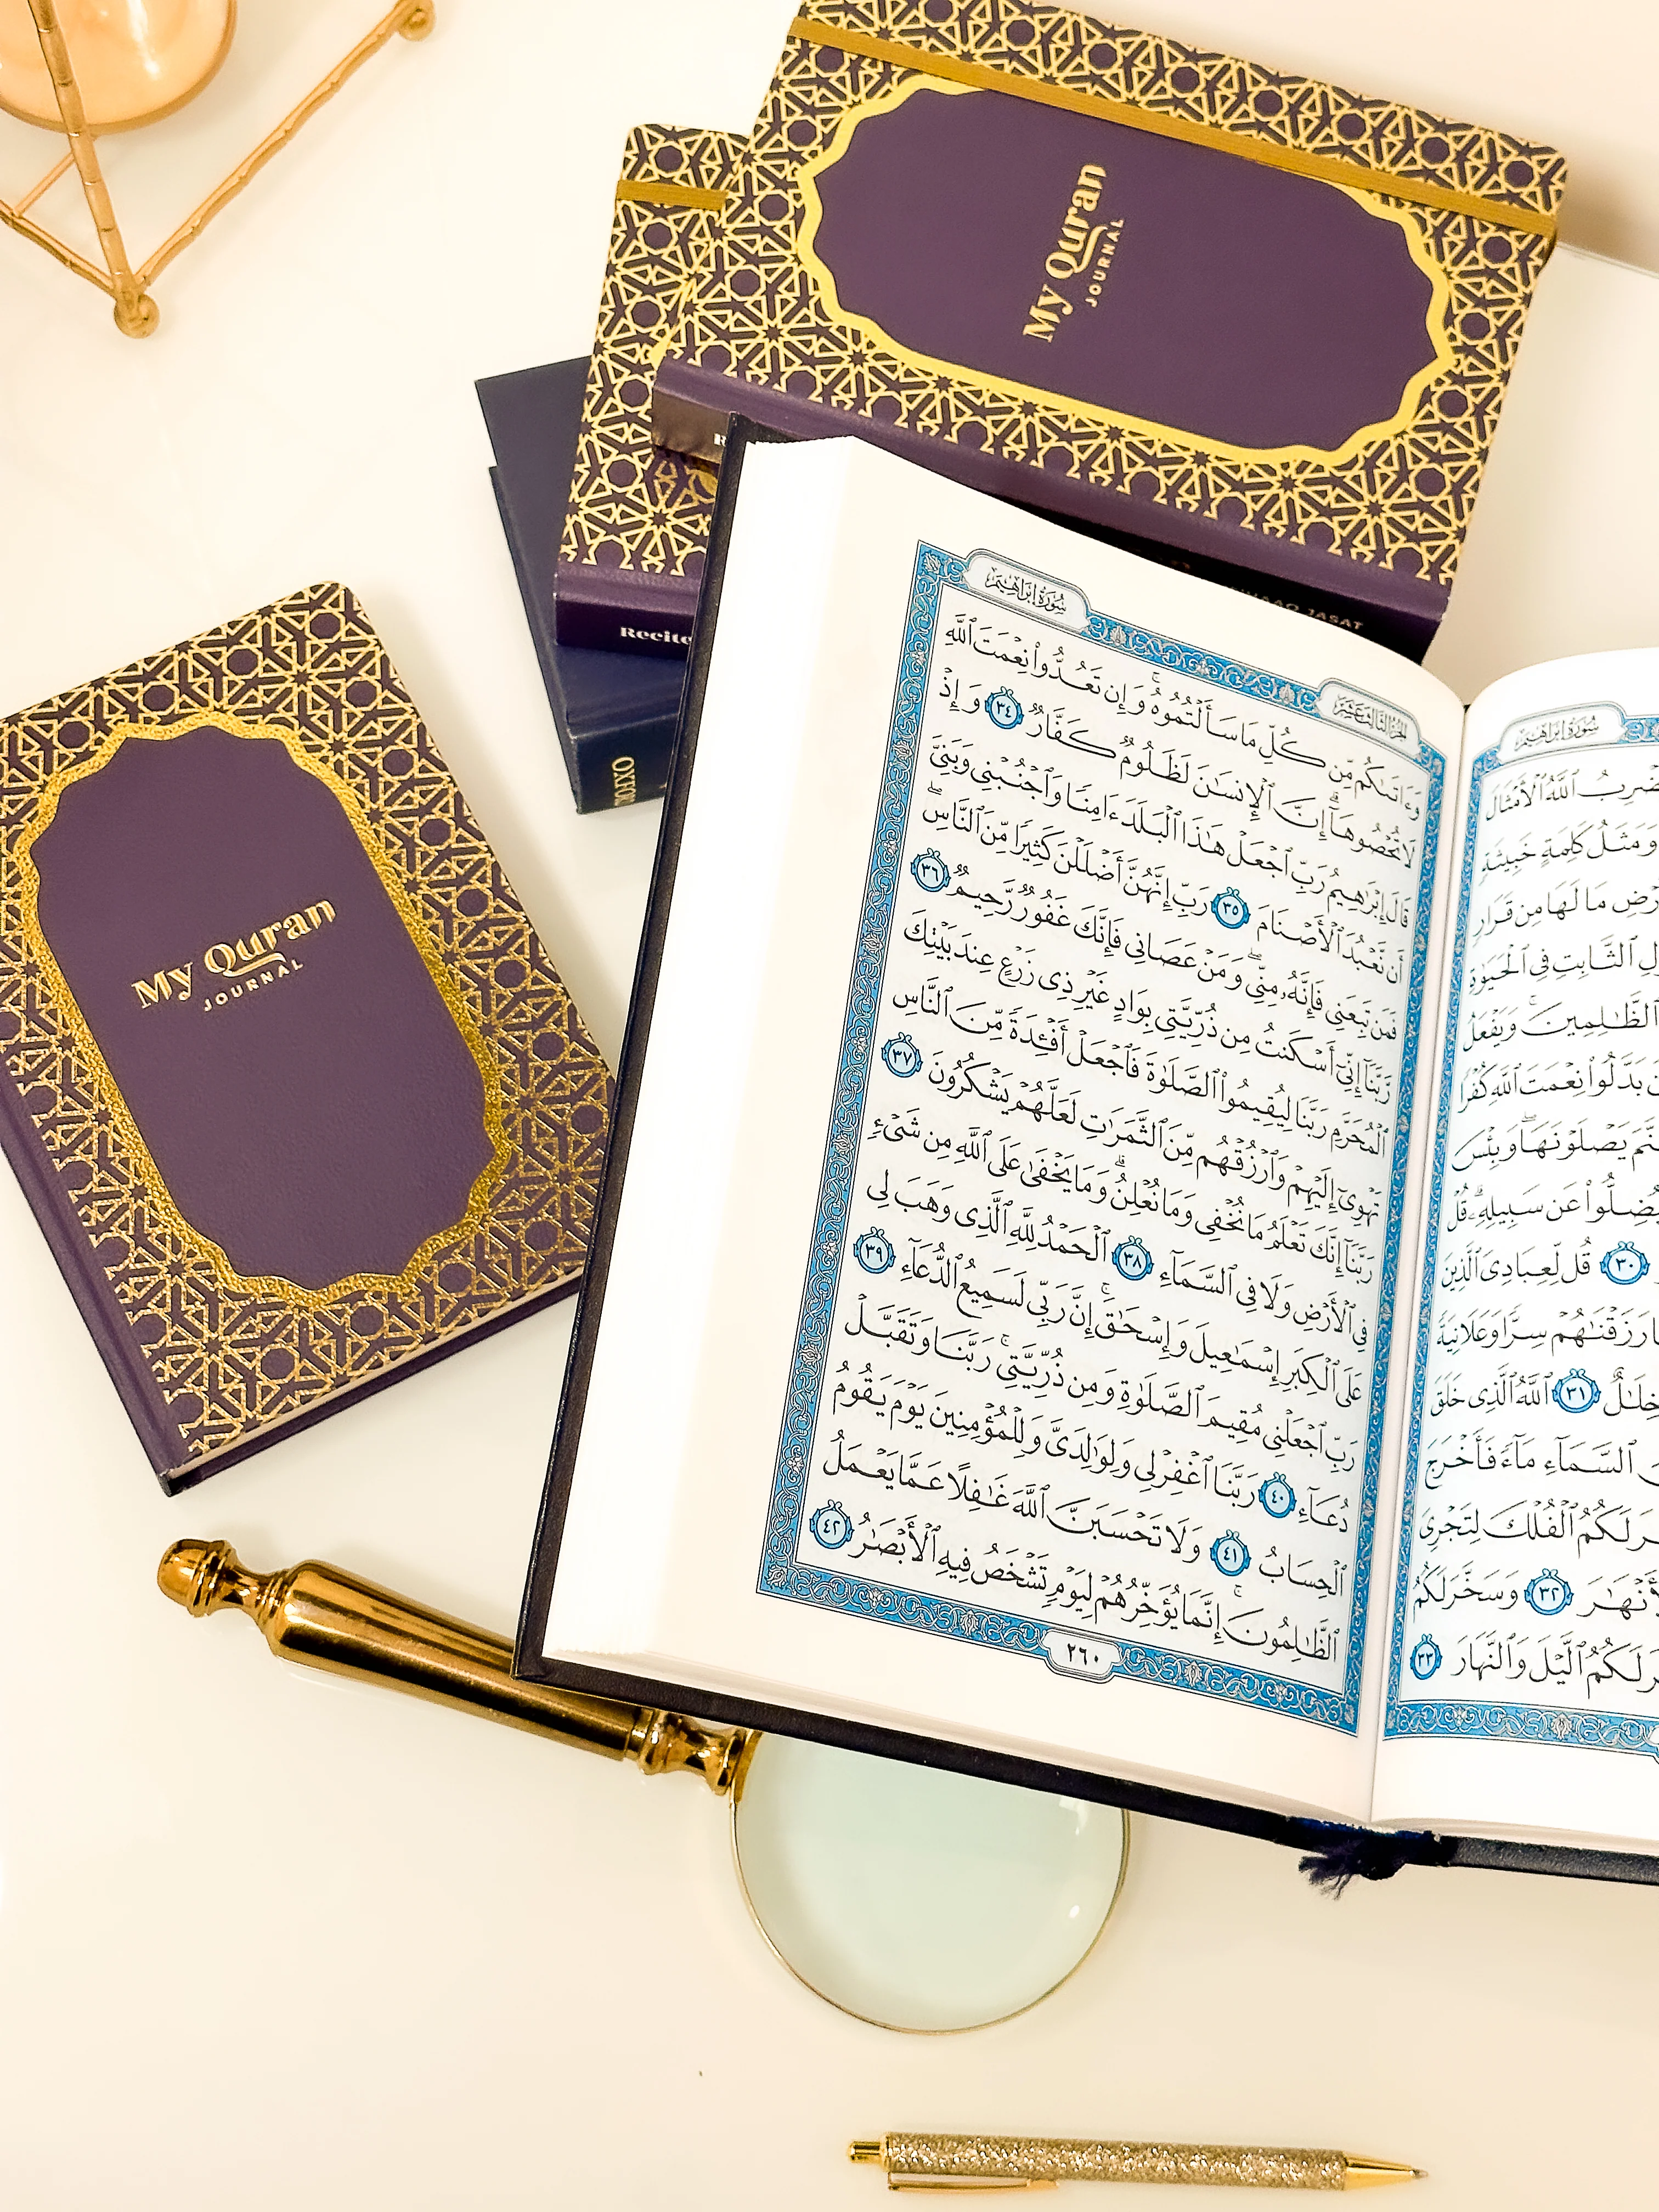 My Quran
JOURNAL
My Quran
JOURNAL
Recite
JASAT
OXFORD
سُورَةُ إِبْرَاهِيمَ
الجُزْءُ الثَّالِثَ عَشَرَ
وَءَاتَىٰكُم مِّن كُلِّ مَا سَأَلْتُمُوهُ ۚ وَإِن تَعُدُّوا۟ نِعْمَتَ ٱللَّهِ
لَا تُحْصُوهَآ ۗ إِنَّ ٱلْإِنسَـٰنَ لَظَلُومٌ كَفَّارٌ ٣٤ وَإِذْ
قَالَ إِبْرَٰهِيمُ رَبِّ ٱجْعَلْ هَـٰذَا ٱلْبَلَدَ ءَامِنًا وَٱجْنُبْنِى وَبَنِىَّ
أَن نَّعْبُدَ ٱلْأَصْنَامَ ٣٥ رَبِّ إِنَّهُنَّ أَضْلَلْنَ كَثِيرًا مِّنَ ٱلنَّاسِ ۖ
فَمَن تَبِعَنِى فَإِنَّهُۥ مِنِّى ۖ وَمَنْ عَصَانِى فَإِنَّكَ غَفُورٌ رَّحِيمٌ ٣٦
رَّبَّنَآ إِنِّىٓ أَسْكَنتُ مِن ذُرِّيَّتِى بِوَادٍ غَيْرِ ذِى زَرْعٍ عِندَ بَيْتِكَ
ٱلْمُحَرَّمِ رَبَّنَا لِيُقِيمُوا۟ ٱلصَّلَوٰةَ فَٱجْعَلْ أَفْـِٔدَةً مِّنَ ٱلنَّاسِ
تَهْوِىٓ إِلَيْهِمْ وَٱرْزُقْهُم مِّنَ ٱلثَّمَرَٰتِ لَعَلَّهُمْ يَشْكُرُونَ ٣٧
رَبَّنَآ إِنَّكَ تَعْلَمُ مَا نُخْفِى وَمَا نُعْلِنُ ۗ وَمَا يَخْفَىٰ عَلَى ٱللَّهِ مِن شَىْءٍ
فِى ٱلْأَرْضِ وَلَا فِى ٱلسَّمَآءِ ٣٨ ٱلْحَمْدُ لِلَّهِ ٱلَّذِى وَهَبَ لِى
عَلَى ٱلْكِبَرِ إِسْمَـٰعِيلَ وَإِسْحَـٰقَ ۚ إِنَّ رَبِّى لَسَمِيعُ ٱلدُّعَآءِ ٣٩
رَبِّ ٱجْعَلْنِى مُقِيمَ ٱلصَّلَوٰةِ وَمِن ذُرِّيَّتِى ۚ رَبَّنَا وَتَقَبَّلْ
دُعَآءِ ٤٠ رَبَّنَا ٱغْفِرْ لِى وَلِوَٰلِدَىَّ وَلِلْمُؤْمِنِينَ يَوْمَ يَقُومُ
ٱلْحِسَابُ ٤١ وَلَا تَحْسَبَنَّ ٱللَّهَ غَـٰفِلًا عَمَّا يَعْمَلُ
ٱلظَّـٰلِمُونَ ۚ إِنَّمَا يُؤَخِّرُهُمْ لِيَوْمٍ تَشْخَصُ فِيهِ ٱلْأَبْصَـٰرُ ٤٢
٢٦٠
سُورَةُ إِبْرَاهِيمَ
ٱللَّهُ ٱلْأَمْثَالَ
وَمَثَلُ كَلِمَةٍ خَبِيثَةٍ
مَا لَهَا مِن قَرَارٍ
ٱلثَّابِتِ فِى ٱلْحَيَوٰةِ
ٱلظَّـٰلِمِينَ ۚ وَيَفْعَلُ
بَدَّلُوا۟ نِعْمَتَ ٱللَّهِ كُفْرًا
يَصْلَوْنَهَا ۖ وَبِئْسَ
عَن سَبِيلِهِۦ ۗ قُلْ
٣٠ قُل لِّعِبَادِىَ ٱلَّذِينَ
رَزَقْنَـٰهُمْ سِرًّا وَعَلَانِيَةً
٣١ ٱللَّهُ ٱلَّذِى خَلَقَ
ٱلسَّمَآءِ مَآءً فَأَخْرَجَ
لَكُمُ ٱلْفُلْكَ لِتَجْرِىَ
٣٢ وَسَخَّرَ لَكُمُ
لَكُمُ ٱلَّيْلَ وَٱلنَّهَارَ ٣٣